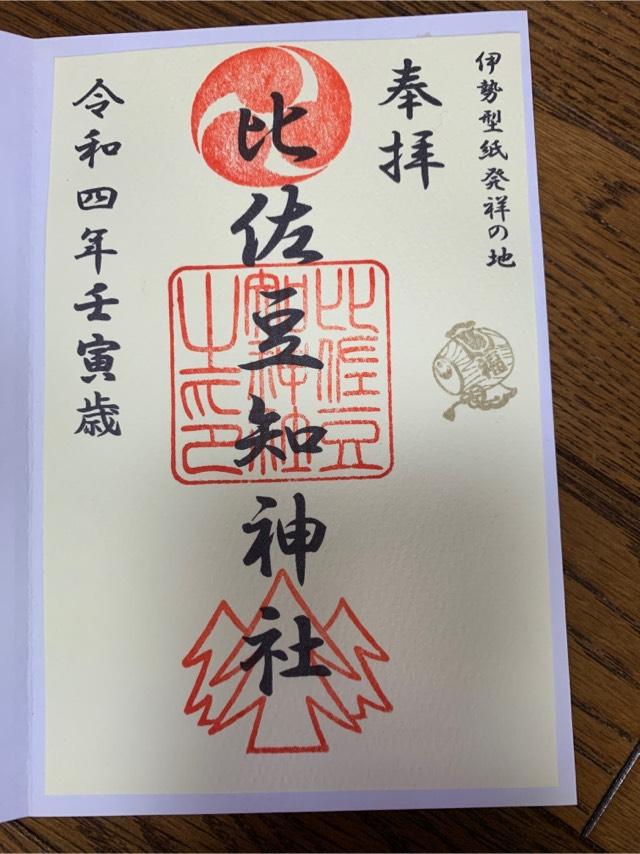 伊勢型紙発祥の地
奉拝
比佐豆知神社
比佐豆
知神社
之印
福
令和四年壬寅歳